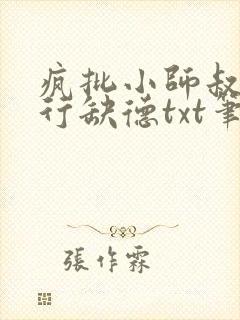 疯批小師叔
行缺德txt筆
張作霖